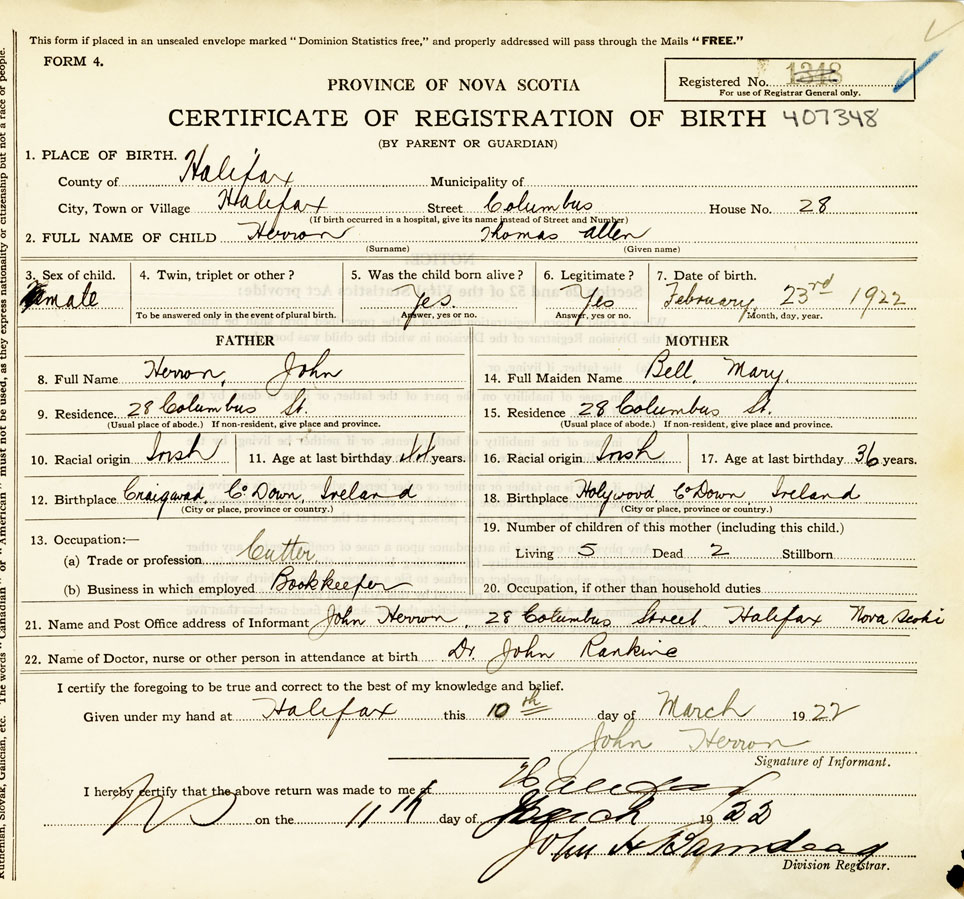 This form if placed in an unsealed envelope marked "Dominion Statistics free," and properly addressed will pass through the Mails "FREE."
FORM 4.
PROVINCE OF NOVA SCOTIA
Registered No. 1348
For use of Registrar General only.
CERTIFICATE OF REGISTRATION OF BIRTH 407348
(BY PARENT OR GUARDIAN)
1. PLACE OF BIRTH.
County of Halifax Municipality of
City, Town or Village Halifax Street Columbus House No. 28
(If birth occurred in a hospital, give its name instead of Street and Number)
2. FULL NAME OF CHILD Herron Thomas Allen
(Surname) (Given name)
3. Sex of child. male
4. Twin, triplet or other?
To be answered only in the event of plural birth.
5. Was the child born alive? Yes.
Answer, yes or no.
6. Legitimate? Yes
Answer, yes or no.
7. Date of birth. February 23rd 1922
Month, day, year.
FATHER
8. Full Name Herron, John
9. Residence 28 Columbus St.
(Usual place of abode.) If non-resident, give place and province.
10. Racial origin Irish 11. Age at last birthday 44 years.
12. Birthplace Craigavad, Co. Down, Ireland
(City or place, province or country.)
13. Occupation:—
(a) Trade or profession Cutter
(b) Business in which employed Bookkeeper
MOTHER
14. Full Maiden Name Bell, Mary.
15. Residence 28 Columbus St.
(Usual place of abode.) If non-resident, give place and province.
16. Racial origin Irish 17. Age at last birthday 36 years.
18. Birthplace Holywood Co Down Ireland
(City or place, province or country.)
19. Number of children of this mother (including this child.)
Living 5 Dead 2 Stillborn
20. Occupation, if other than household duties
21. Name and Post Office address of Informant John Herron, 28 Columbus Street Halifax Nova Scoti
22. Name of Doctor, nurse or other person in attendance at birth Dr. John Rankine
I certify the foregoing to be true and correct to the best of my knowledge and belief.
Given under my hand at Halifax this 10th day of March 1922
John Herron
Signature of Informant.
I hereby certify that the above return was made to me at Halifax
NS on the 11th day of March 1922
John H
Division Registrar.
Ruthenian, Slovak, Galician, etc. The words "Canadian" or "American" must not be used, as they express nationality or citizenship but not a race or people.